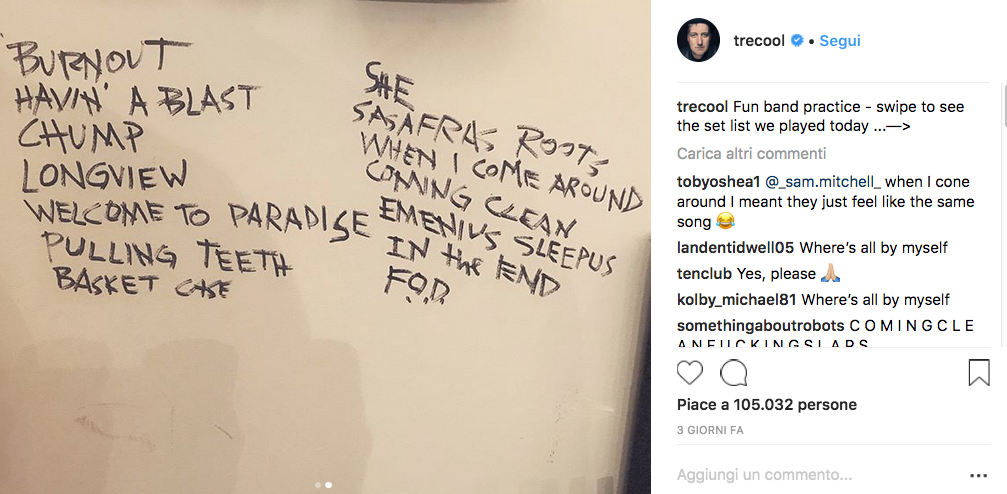 BURNOUT
HAVIN' A BLAST
CHUMP
LONGVIEW
WELCOME TO PARADISE
PULLING TEETH
BASKET CASE
SHE
SASAFRAS ROOTS
WHEN I COME AROUND
COMING CLEAN
EMENIUS SLEEPUS
IN the END
F.O.D.
trecool • Segui
trecool Fun band practice - swipe to see
the set list we played today ...—>
Carica altri commenti
tobyoshea1 @_sam.mitchell_ when I cone
around I meant they just feel like the same
song 😂
landentidwell05 Where's all by myself
tenclub Yes, please 🙏🏼
kolby_michael81 Where's all by myself
somethingaboutrobots C O M I N G C L E
A N F U C K I N G S L A P S
Piace a 105.032 persone
3 GIORNI FA
Aggiungi un commento...